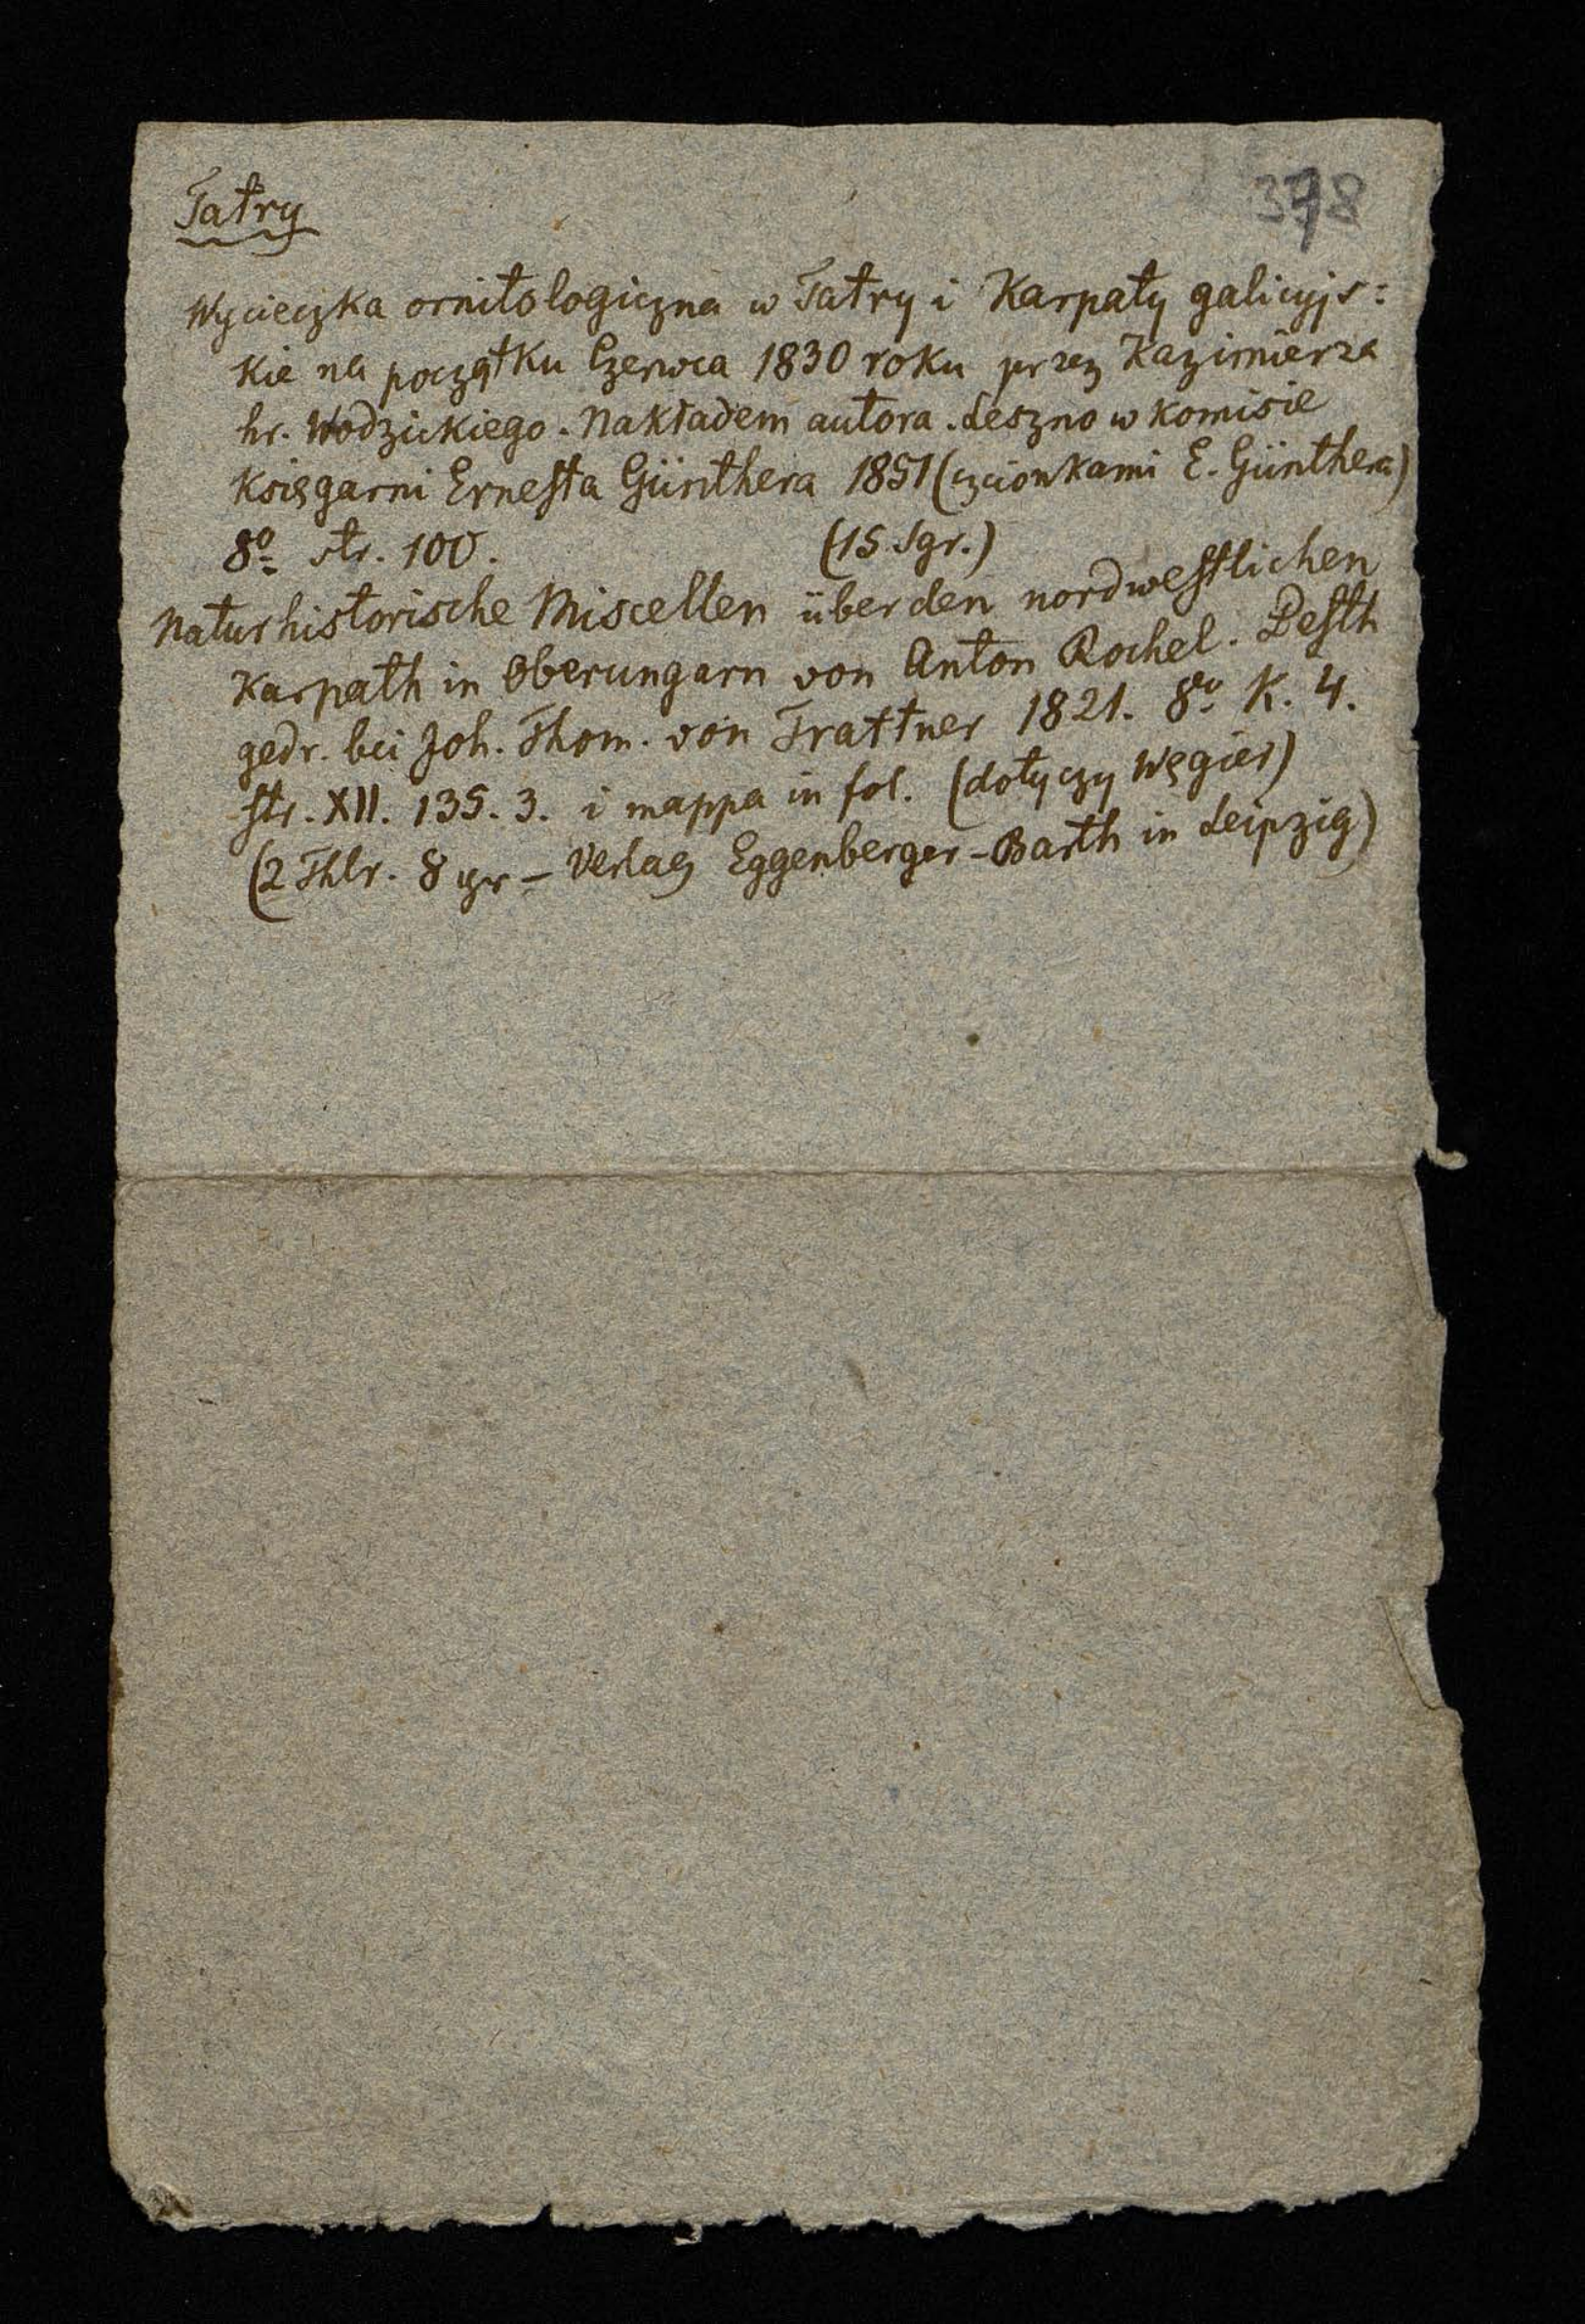 Tatry
378
Wycieczka ornitologiczna w Tatry i Karpaty galicyjs:
kie na początku Czerwca 1830 roku przez Kazimierza
hr. Wodzickiego. Nakładem autora. Leszno w komisie
Księgarni Ernesta Günthera 1851 (czcionkami E. Günthera)
8o str. 100. (15 Sgr.)
Naturhistorische Miscellen über den nordwestlichen
Karpath in Oberungarn von Anton Rochel. Pesth
gedr. bei Joh. Thom. von Trattner 1821. 8o K. 4.
str. XII. 135. 3. i mappa in fol. (dotyczy Węgier)
(2 Thlr. 8 gr – Verlag Eggenberger – Barth in Leipzig)